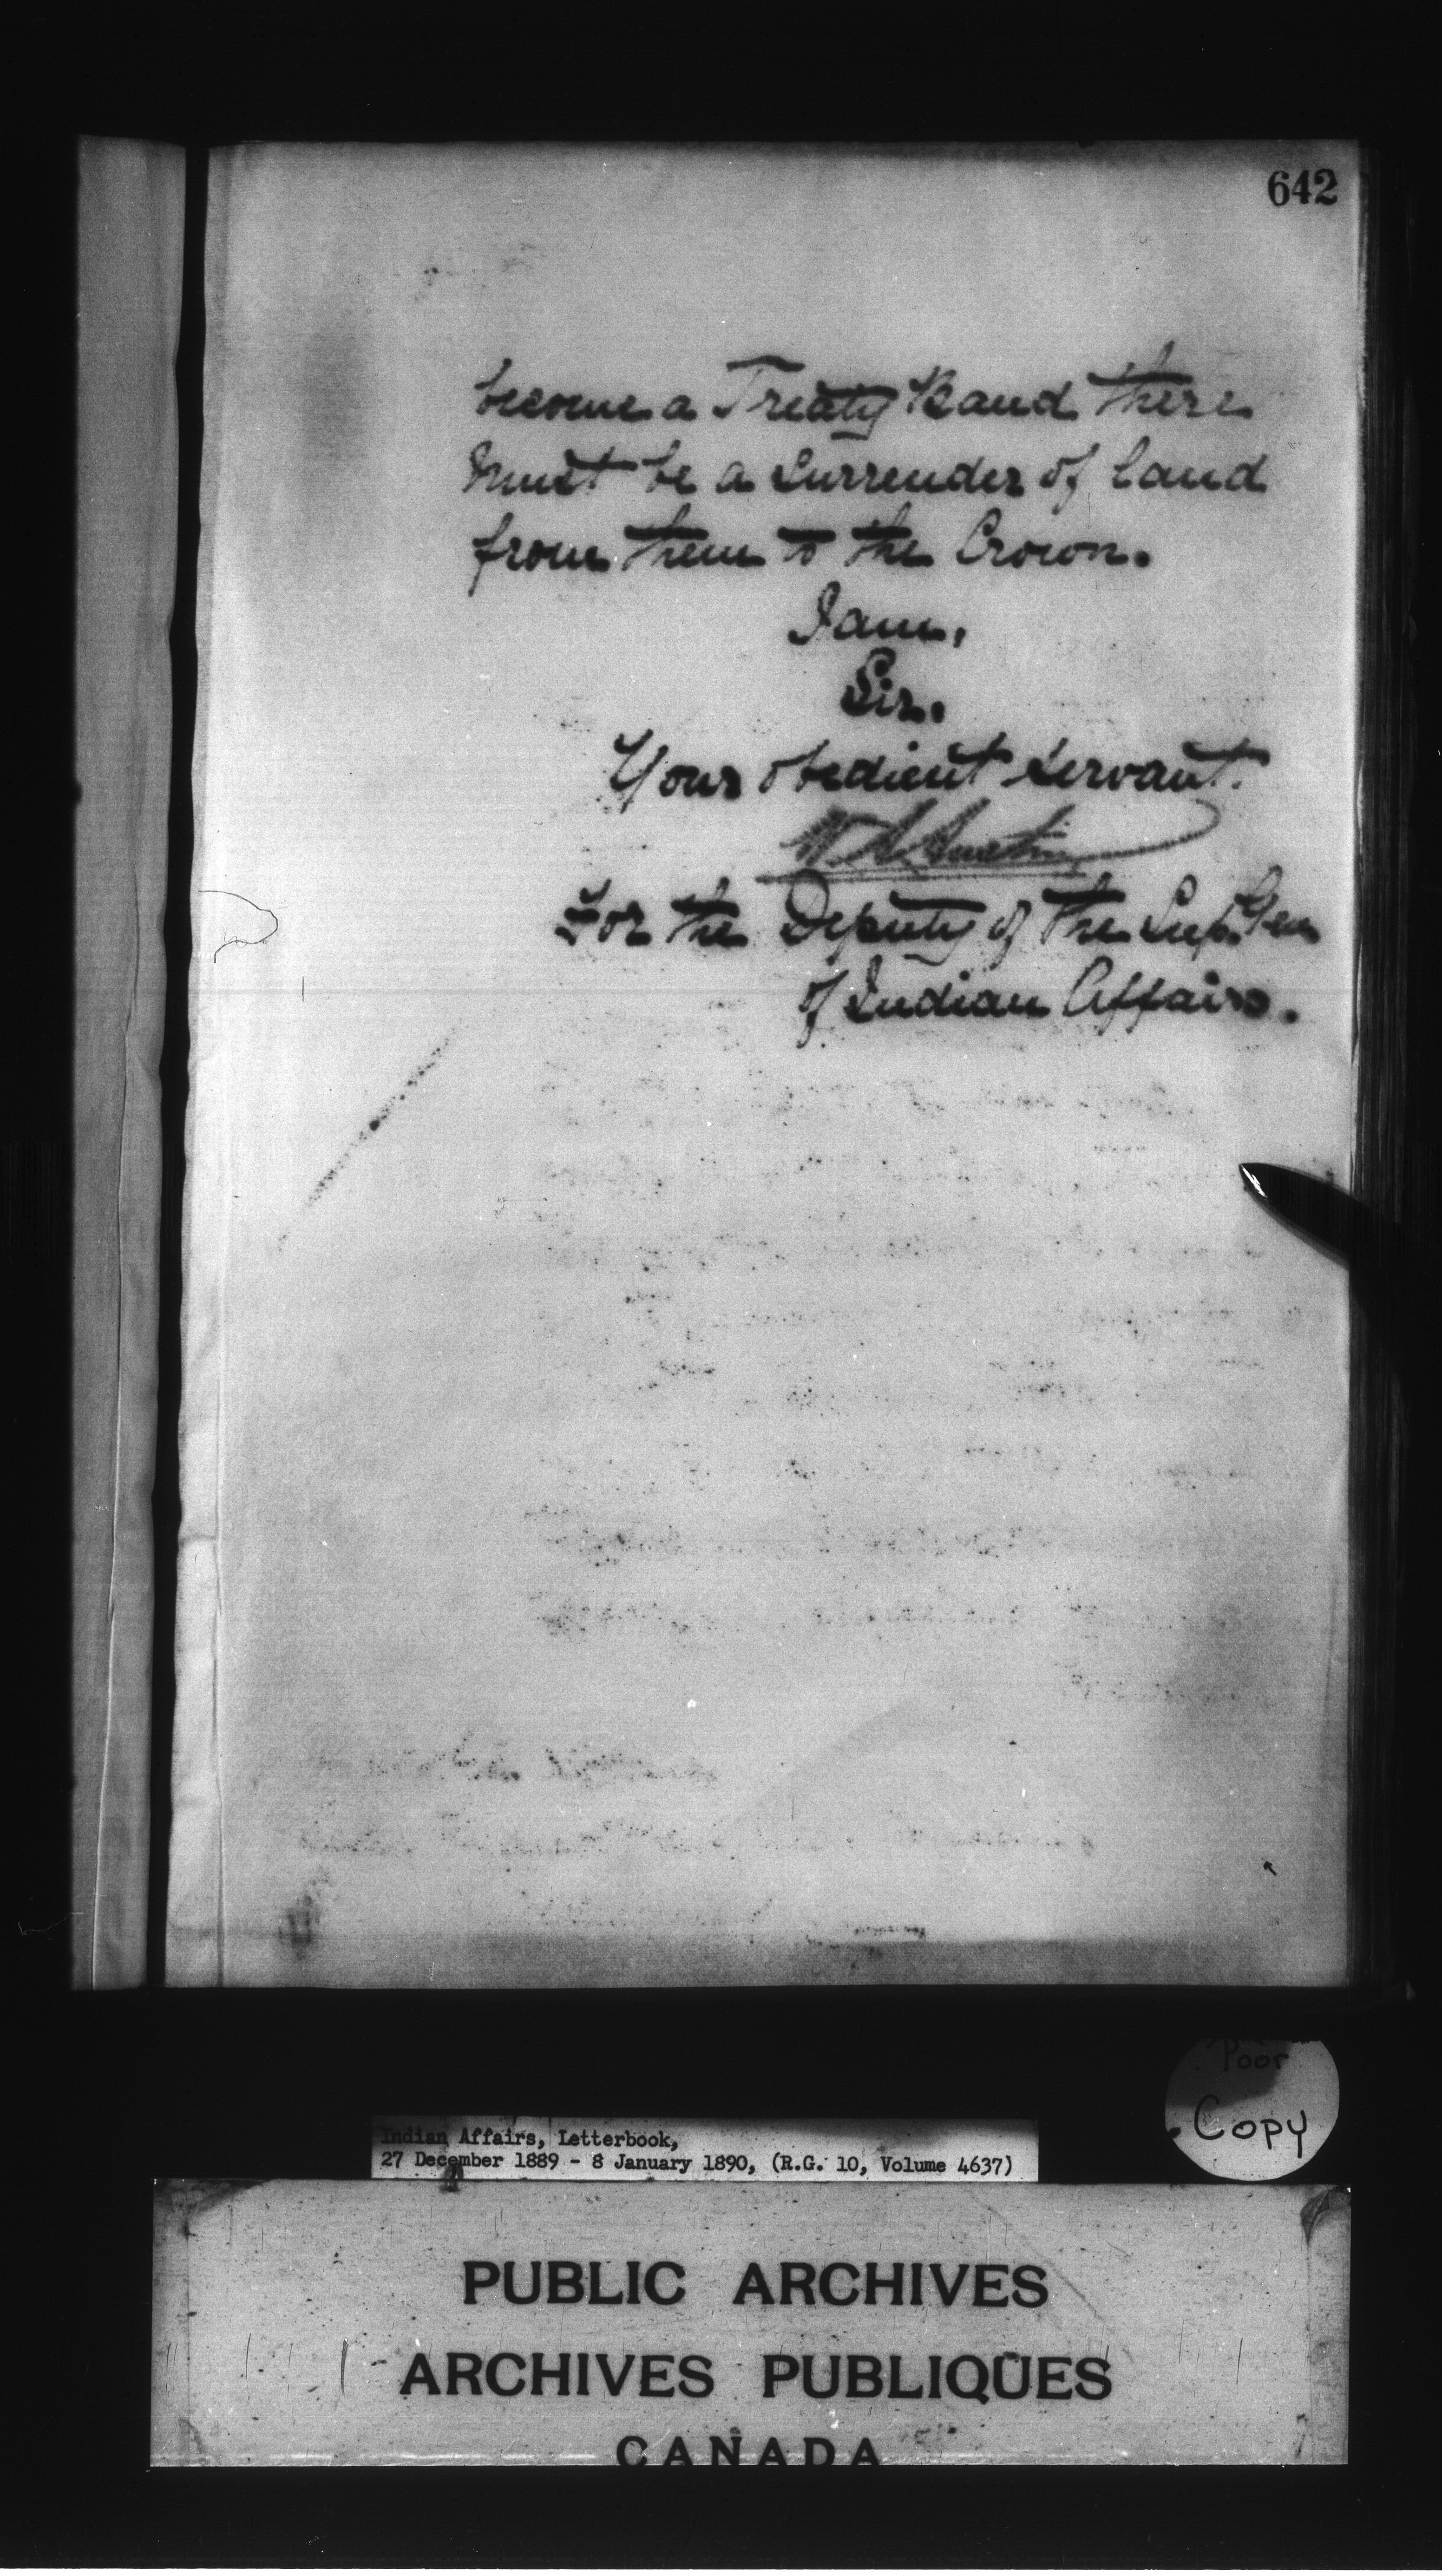 642
become a Treaty Band there
must be a surrender of land
from them to the Crown.
I am,
Sir.
Your obedient servant.
W. A. Austin
For the Deputy of the Sup. Gen
of Indian Affairs.
Poor
Copy
Indian Affairs, Letterbook,
27 December 1889 - 8 January 1890, (R.G. 10, Volume 4637)
PUBLIC ARCHIVES
ARCHIVES PUBLIQUES
CANADA